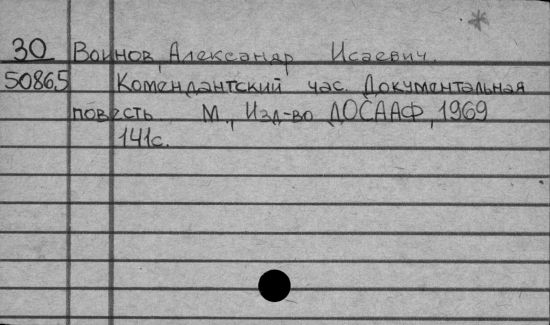 30 Воинов, Александр Исаевич.
50865 Комендантский час. Документальная
повесть. М., Изд-во ДОСААФ, 1969
141с.